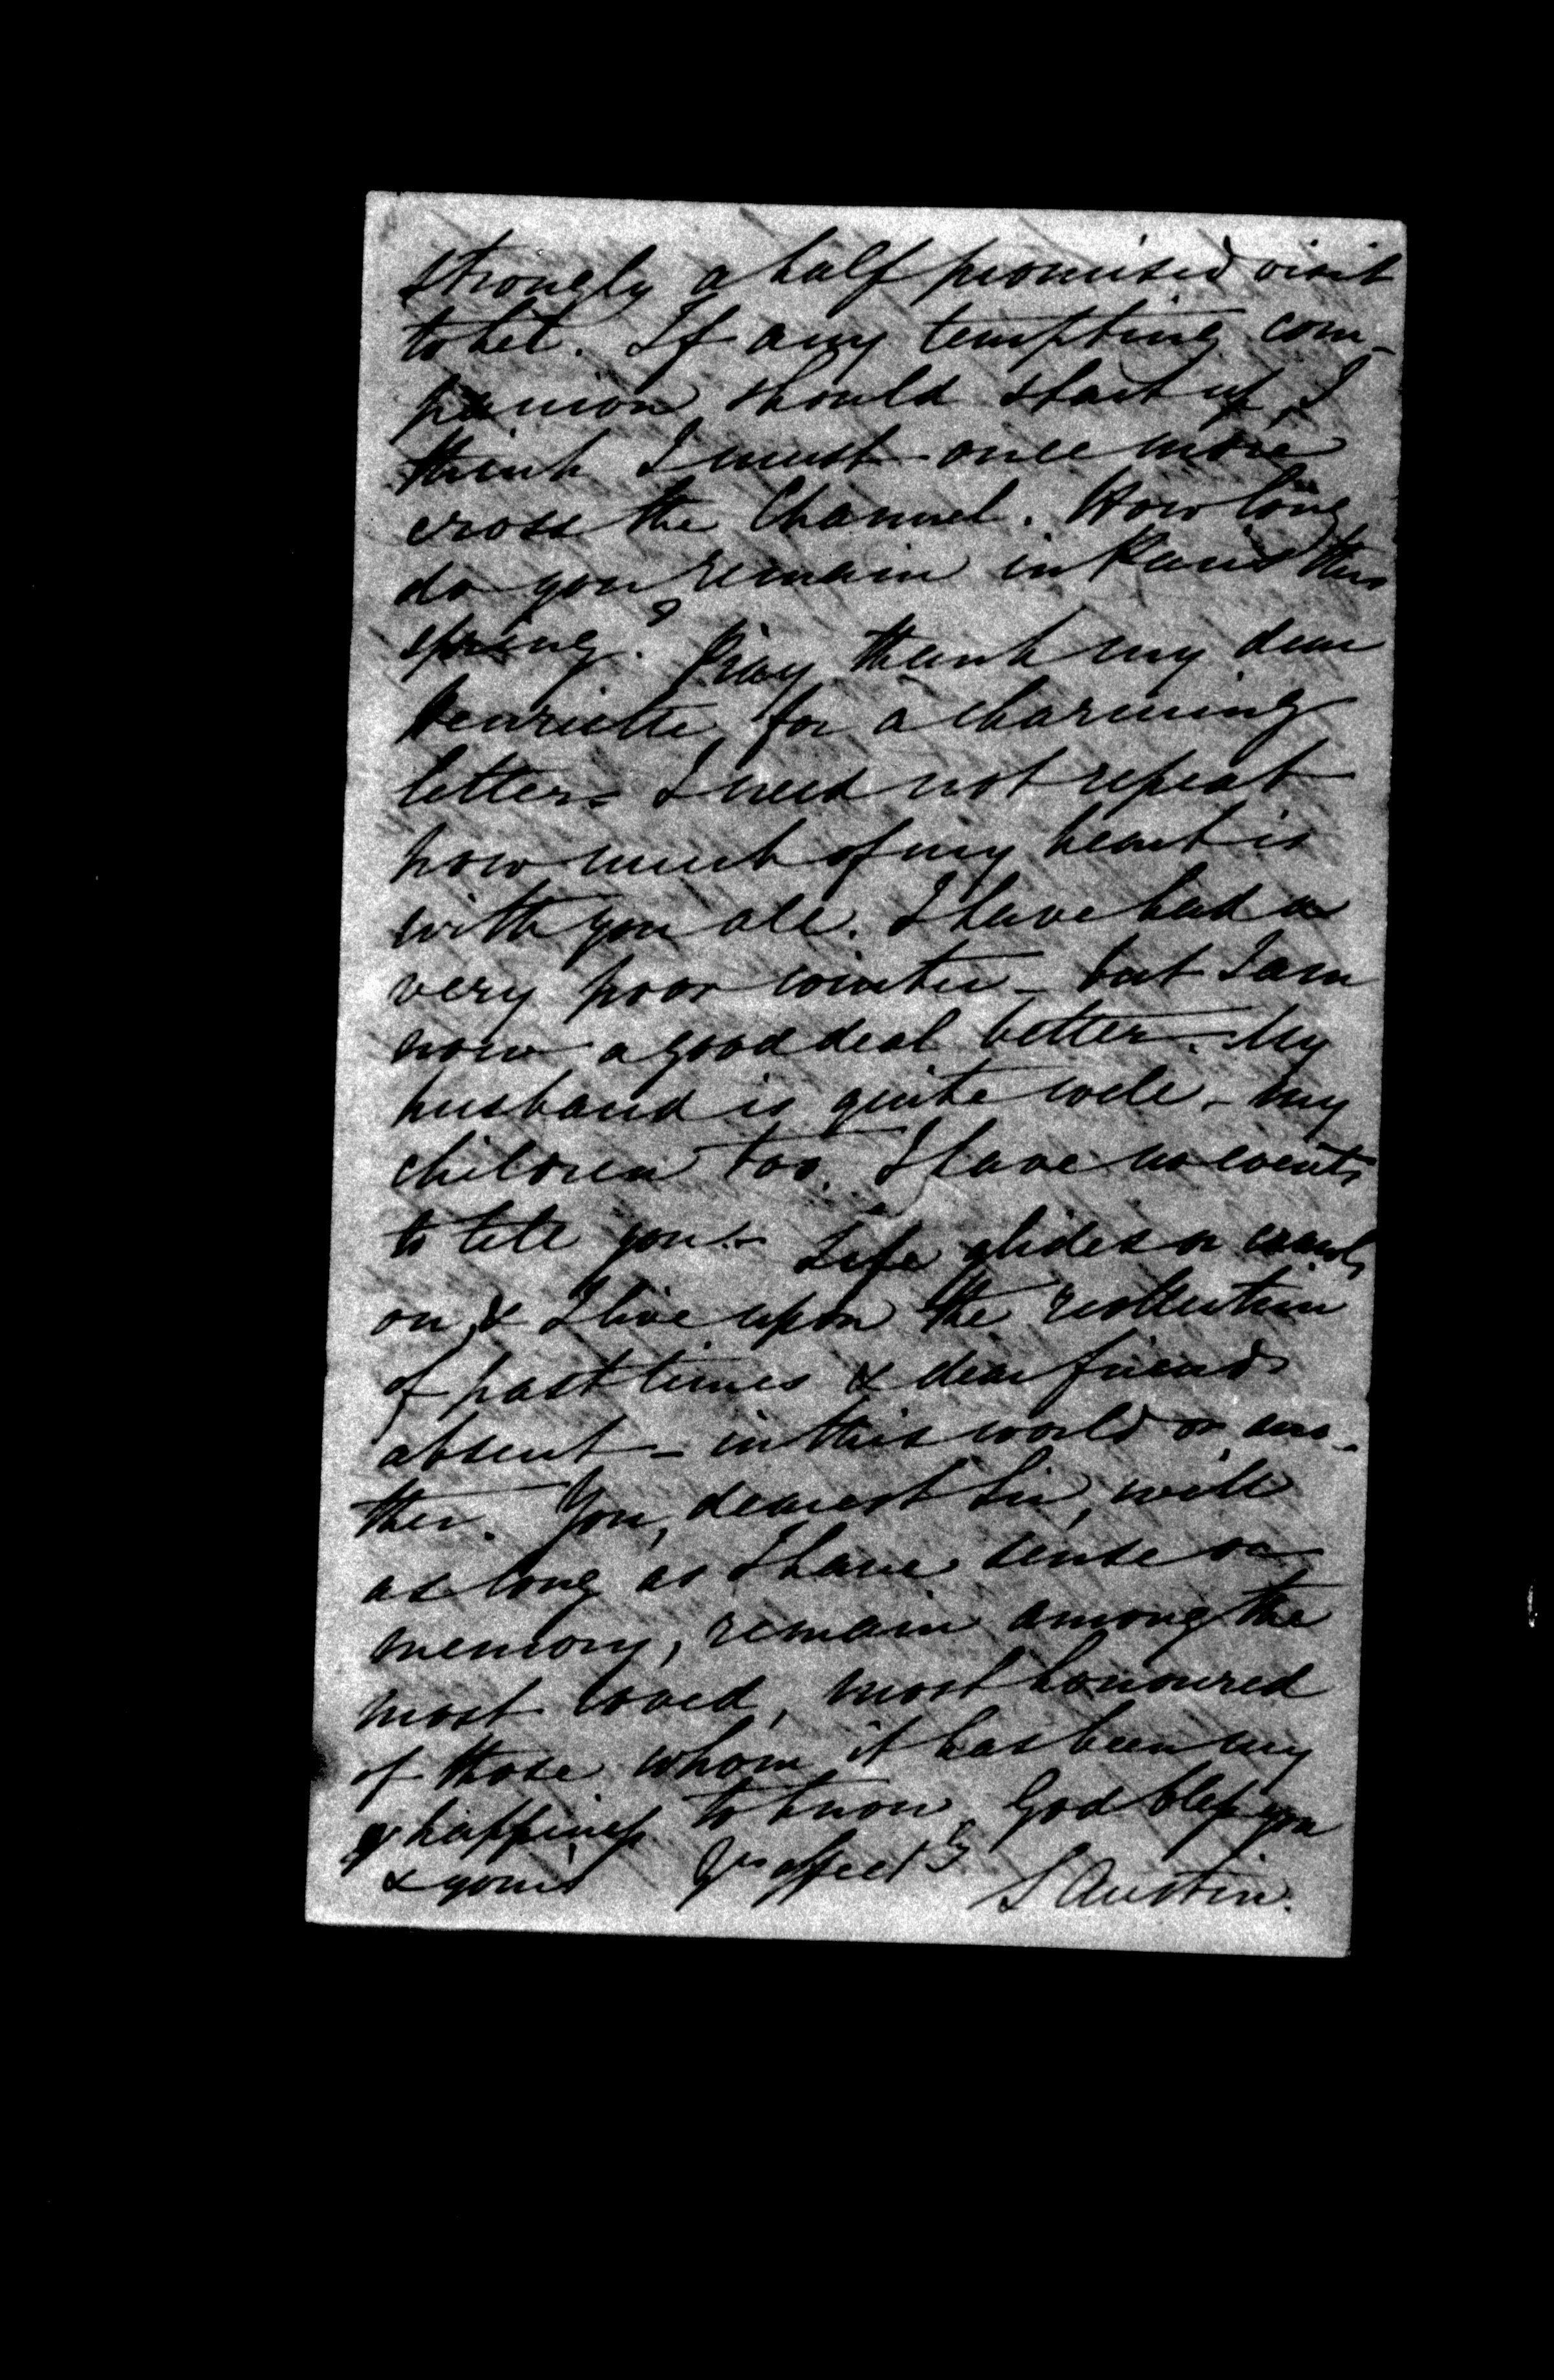 strongly a half promised visit
to her. If any tempting com-
panion should start up, I
think I must once more
cross the Channel. How long
do you remain in Paris this
spring? Pray thank my dear
Henriette for a charming
letter - I need not repeat
how much of my heart is
with you all. I have had a
very poor winter - but I am
now a good deal better. My
husband is quite well - my
children too. I have no events
to tell you - Life glides or crawls
on, & I live upon the recollection
of past times & dear friends
absent - in this world or ano-
ther. You, dearest Sir, will
as long as I have sense or
memory, remain among the
most loved, most honoured
of those whom it has been my
happiness to know. God bless you
& yours Yrs affectly
S Austin.